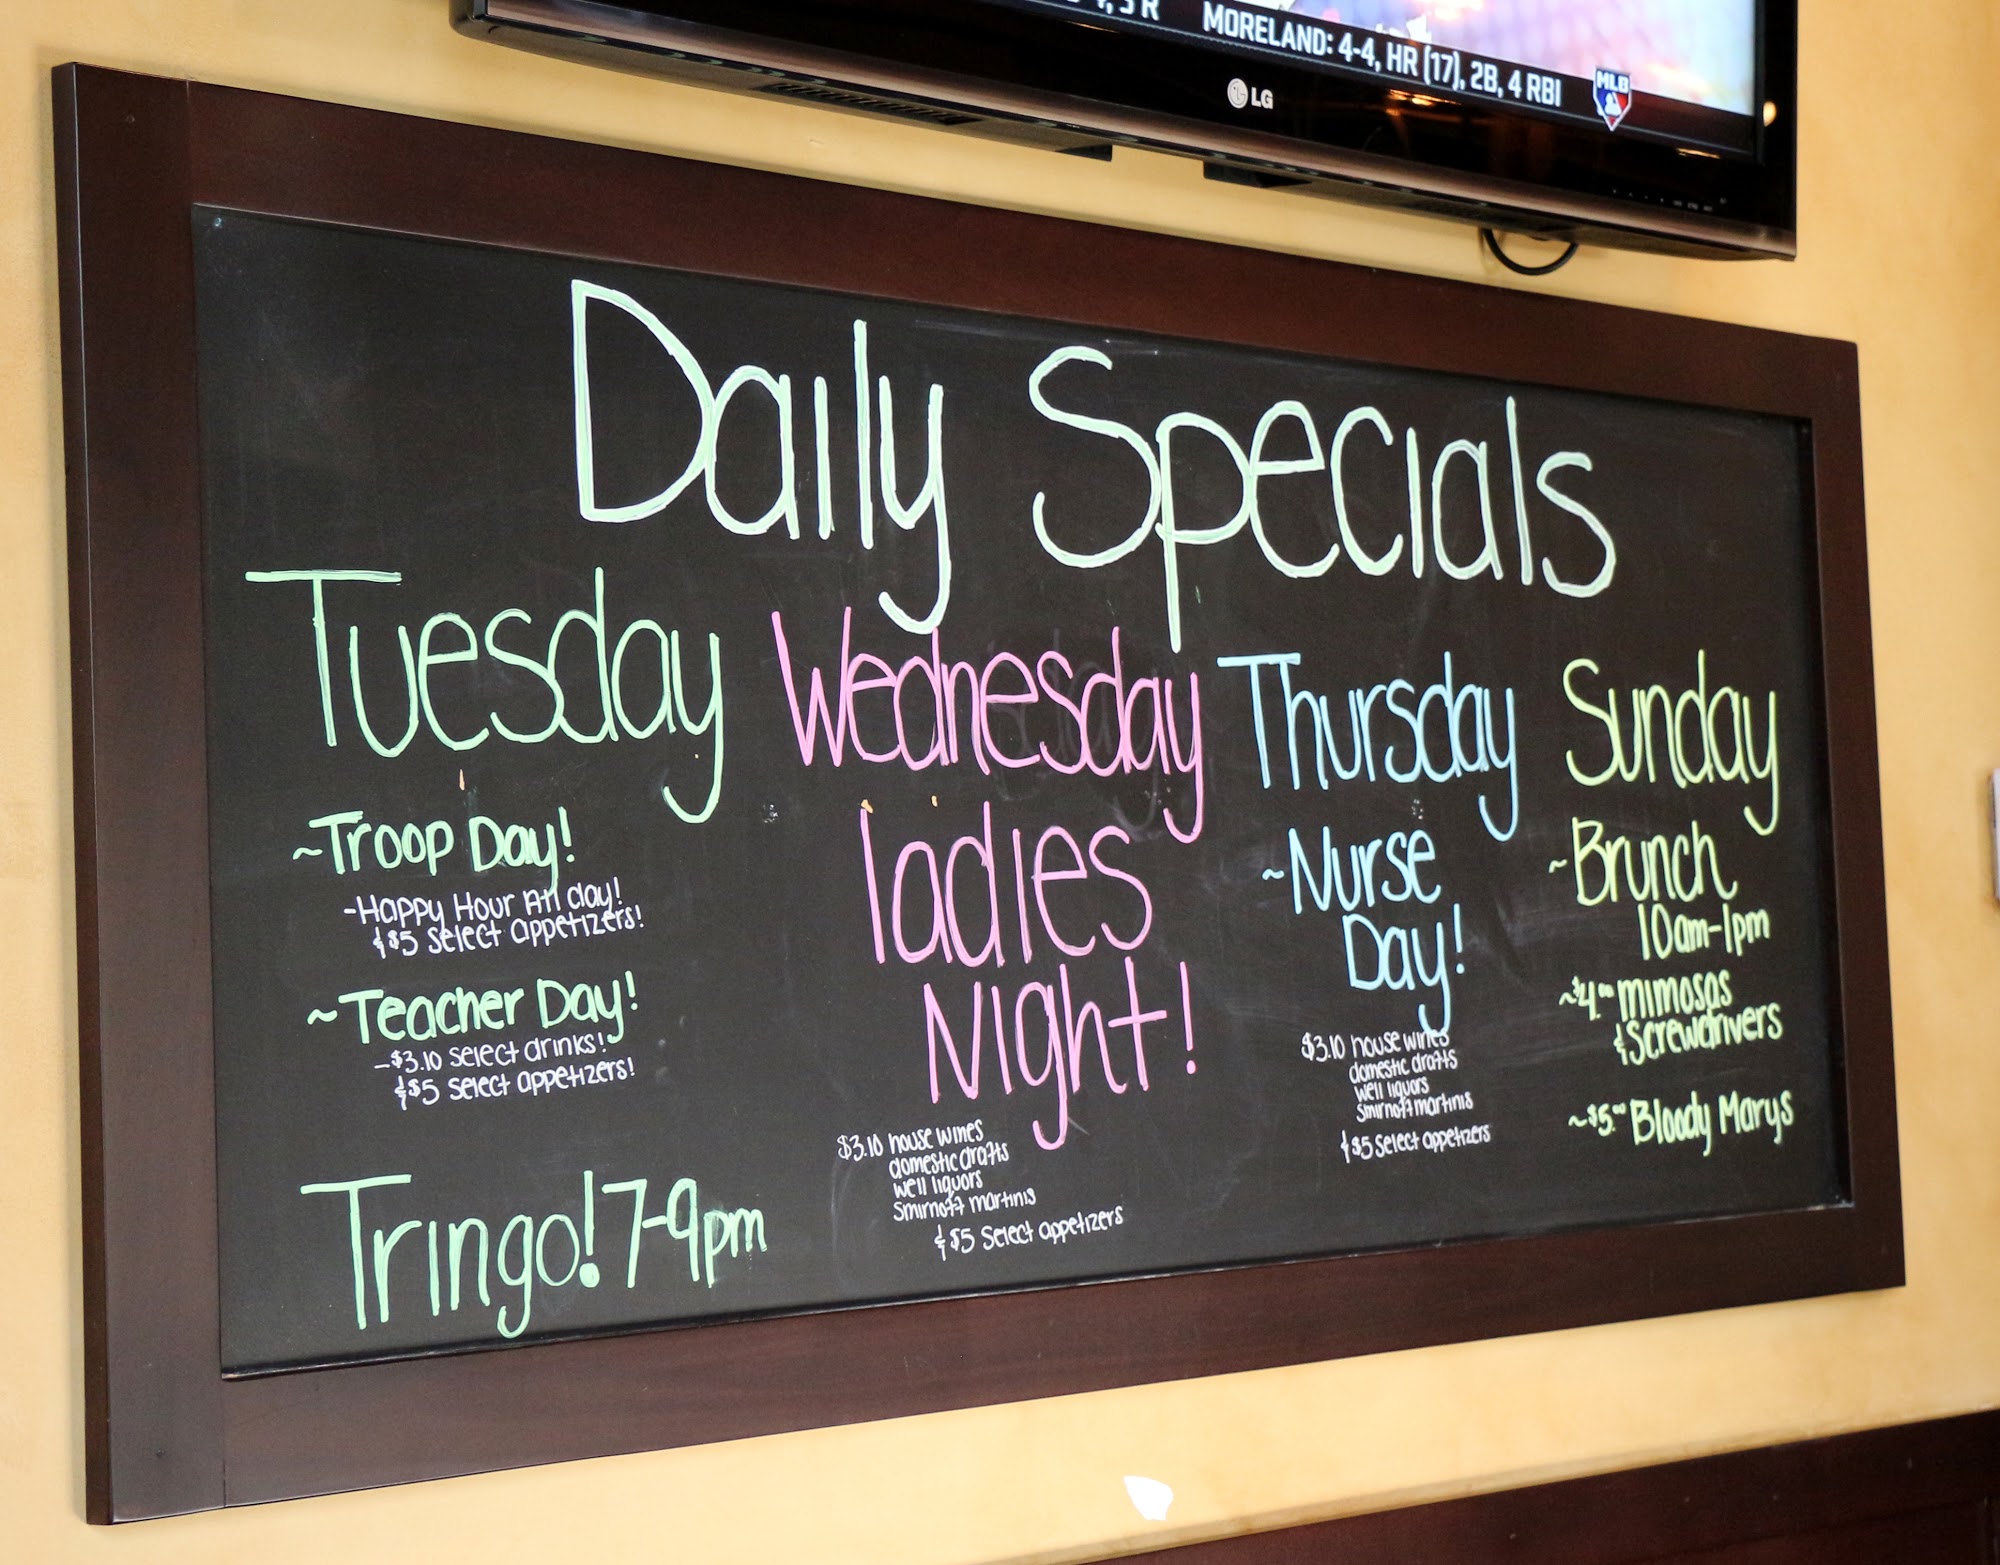 MORELAND: 4-4, HR (17), 2B, 4 RBI
MLB
LG
Daily Specials
Tuesday
~Troop Day!
-Happy Hour All day!
& $5 select appetizers!
~Teacher Day!
-$3.10 select drinks!
& $5 select appetizers!
Tringo! 7-9pm
Wednesday
ladies
Night!
$3.10 house wines
domestic drafts
well liquors
Smirnoff martinis
& $5 select appetizers
Thursday
~Nurse
Day!
$3.10 house wines
domestic drafts
well liquors
Smirnoff martinis
& $5 select appetizers
Sunday
~Brunch
10am-1pm
~$4.00 mimosas
& Screwdrivers
~$5.00 Bloody Marys